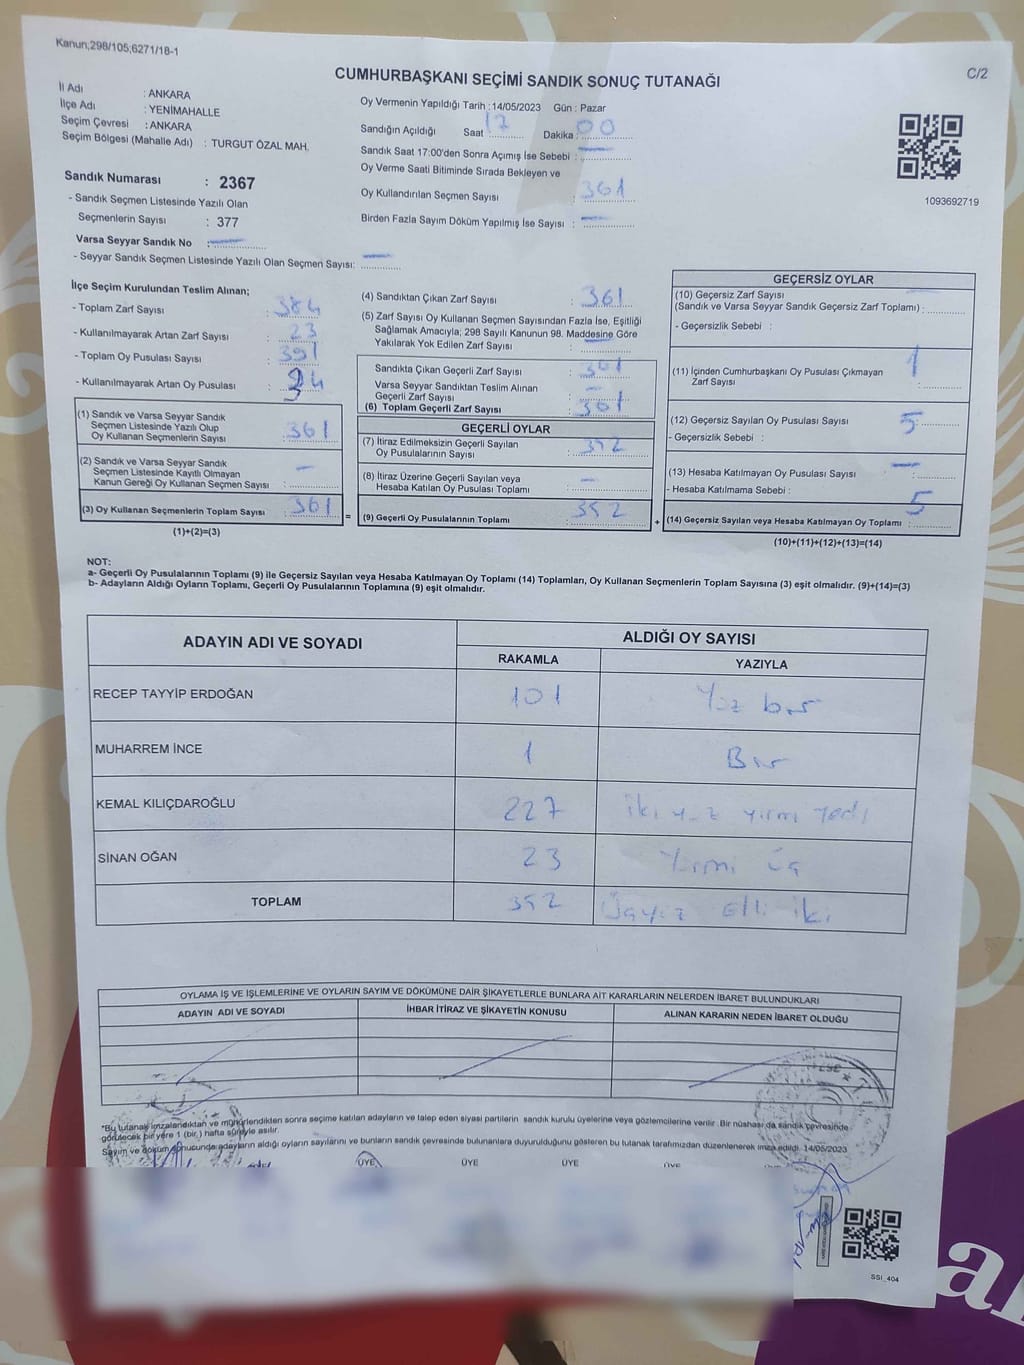 Kanun;298/105;6271/18-1
C/2
CUMHURBAŞKANI SEÇİMİ SANDIK SONUÇ TUTANAĞI
İl Adı : ANKARA
İlçe Adı : YENİMAHALLE
Seçim Çevresi : ANKARA
Seçim Bölgesi (Mahalle Adı) : TURGUT ÖZAL MAH.
Oy Vermenin Yapıldığı Tarih :14/05/2023 Gün : Pazar
Sandığın Açıldığı Saat 17 Dakika 00
Sandık Saat 17:00'den Sonra Açımış İse Sebebi : —
Oy Verme Saati Bitiminde Sırada Bekleyen ve
Oy Kullandırılan Seçmen Sayısı : 361
Birden Fazla Sayım Döküm Yapılmış İse Sayısı : —
1093692719
Sandık Numarası : 2367
- Sandık Seçmen Listesinde Yazılı Olan
Seçmenlerin Sayısı : 377
Varsa Seyyar Sandık No : —
- Seyyar Sandık Seçmen Listesinde Yazılı Olan Seçmen Sayısı: —
İlçe Seçim Kurulundan Teslim Alınan;
- Toplam Zarf Sayısı : 384
- Kullanılmayarak Artan Zarf Sayısı : 23
- Toplam Oy Pusulası Sayısı : 391
- Kullanılmayarak Artan Oy Pusulası :
(1) Sandık ve Varsa Seyyar Sandık
Seçmen Listesinde Yazılı Olup
Oy Kullanan Seçmenlerin Sayısı : 361
(2) Sandık ve Varsa Seyyar Sandık
Seçmen Listesinde Kayıtlı Olmayan
Kanun Gereği Oy Kullanan Seçmen Sayısı : —
(3) Oy Kullanan Seçmenlerin Toplam Sayısı : 361
(1)+(2)=(3)
(4) Sandıktan Çıkan Zarf Sayısı : 361
(5) Zarf Sayısı Oy Kullanan Seçmen Sayısından Fazla İse, Eşitliği
Sağlamak Amacıyla; 298 Sayılı Kanunun 98. Maddesine Göre
Yakılarak Yok Edilen Zarf Sayısı : —
Sandıkta Çıkan Geçerli Zarf Sayısı : 361
Varsa Seyyar Sandıktan Teslim Alınan
Geçerli Zarf Sayısı : —
(6) Toplam Geçerli Zarf Sayısı : 361
GEÇERLİ OYLAR
(7) İtiraz Edilmeksizin Geçerli Sayılan
Oy Pusulalarının Sayısı : 352
(8) İtiraz Üzerine Geçerli Sayılan veya
Hesaba Katılan Oy Pusulası Toplamı : —
= (9) Geçerli Oy Pusulalarının Toplamı : 352 +
GEÇERSİZ OYLAR
(10) Geçersiz Zarf Sayısı
(Sandık ve Varsa Seyyar Sandık Geçersiz Zarf Toplamı) : —
- Geçersizlik Sebebi :
(11) İçinden Cumhurbaşkanı Oy Pusulası Çıkmayan
Zarf Sayısı : 1
(12) Geçersiz Sayılan Oy Pusulası Sayısı : 5
- Geçersizlik Sebebi :
(13) Hesaba Katılmayan Oy Pusulası Sayısı : —
- Hesaba Katılmama Sebebi :
(14) Geçersiz Sayılan veya Hesaba Katılmayan Oy Toplamı : 5
(10)+(11)+(12)+(13)=(14)
NOT:
a- Geçerli Oy Pusulalarının Toplamı (9) ile Geçersiz Sayılan veya Hesaba Katılmayan Oy Toplamı (14) Toplamları, Oy Kullanan Seçmenlerin Toplam Sayısına (3) eşit olmalıdır. (9)+(14)=(3)
b- Adayların Aldığı Oyların Toplamı, Geçerli Oy Pusulalarının Toplamına (9) eşit olmalıdır.
ADAYIN ADI VE SOYADI ALDIĞI OY SAYISI
RAKAMLA YAZIYLA
RECEP TAYYİP ERDOĞAN 101 Yüz bir
MUHARREM İNCE 1 Bir
KEMAL KILIÇDAROĞLU 227 iki yüz yirmi yedi
SİNAN OĞAN 23 Yirmi üç
TOPLAM 352 Üçyüz elli iki
OYLAMA İŞ VE İŞLEMLERİNE VE OYLARIN SAYIM VE DÖKÜMÜNE DAİR ŞİKAYETLERLE BUNLARA AİT KARARLARIN NELERDEN İBARET BULUNDUKLARI
ADAYIN ADI VE SOYADI İHBAR İTİRAZ VE ŞİKAYETİN KONUSU ALINAN KARARIN NEDEN İBARET OLDUĞU
*Bu tutanak imzalandıktan ve mühürlendikten sonra seçime katılan adayların ve talep eden siyasi partilerin sandık kurulu üyelerine veya gözlemcilerine verilir. Bir nüshası da sandık çevresinde
görülecek bir yere 1 (bir) hafta süreyle asılır.
Sayım ve döküm sonucunda adayların aldığı oyların sayılarını ve bunların sandık çevresinde bulunanlara duyurulduğunu gösteren bu tutanak tarafımızdan düzenlenerek imza edildi. 14/05/2023
ÜYE ÜYE ÜYE ÜYE
SSI_404
al